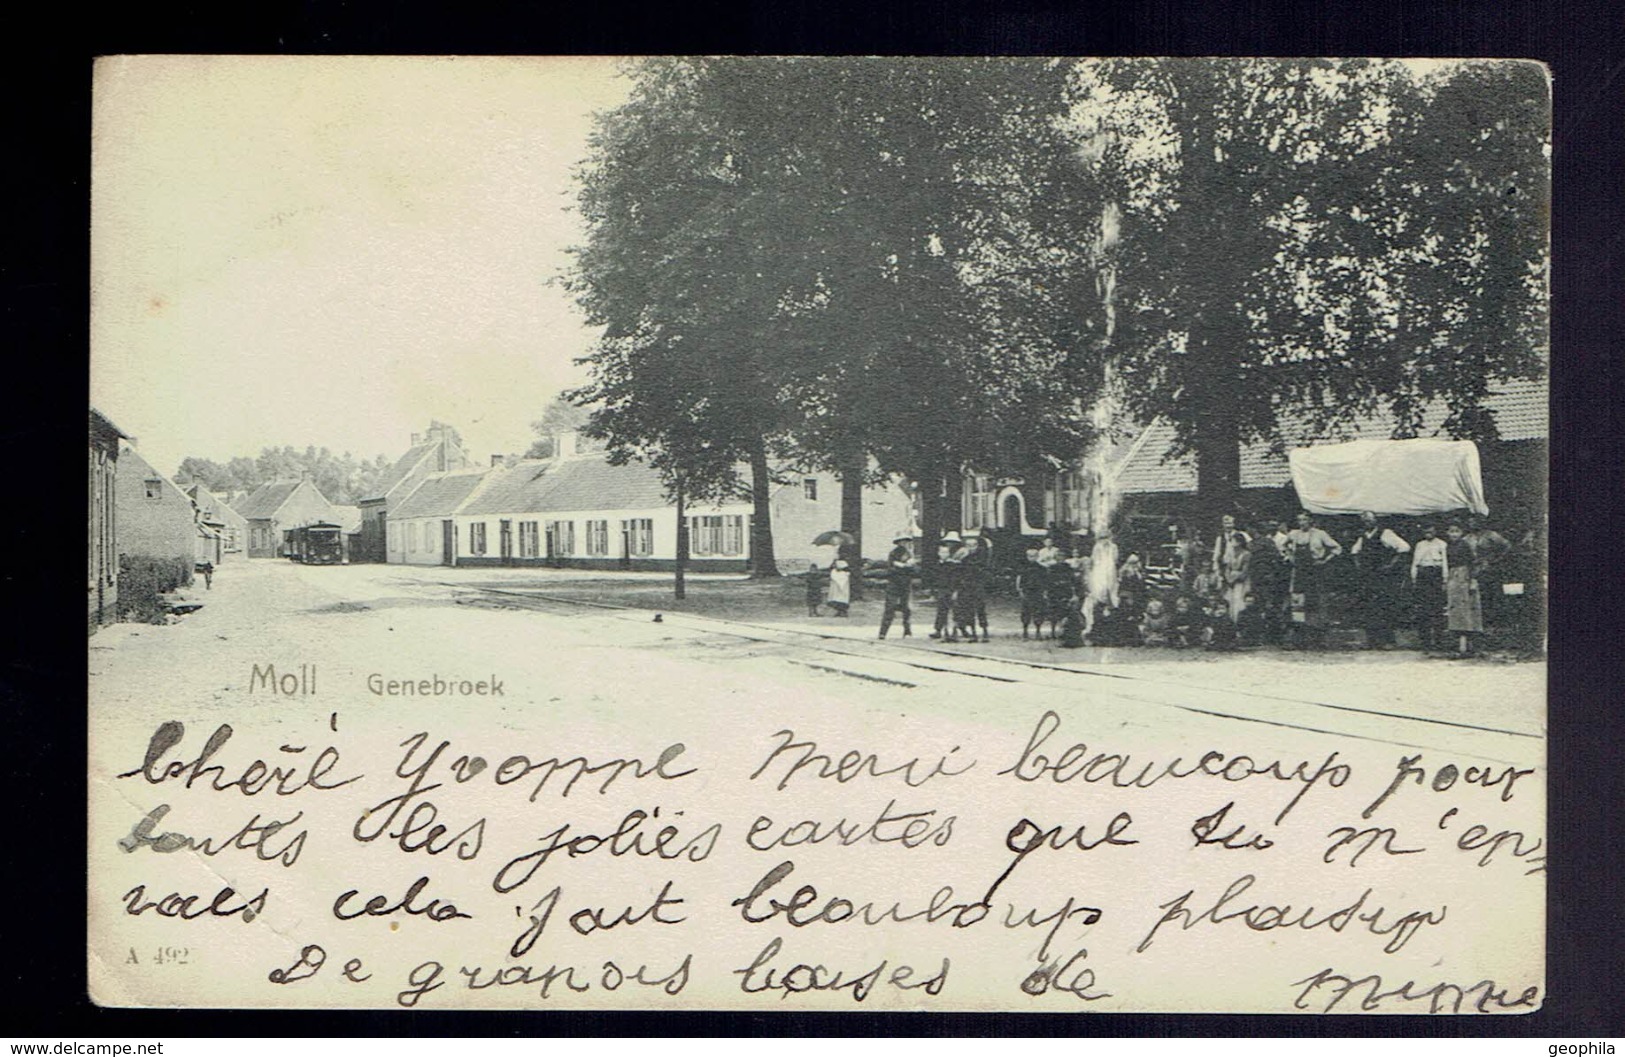 Moll Genebroek
Chère Yvonne Merci beaucoup pour
toutes les jolies cartes que tu m'en
voies cela fait beauboup plaisir
A 492
De grands baises de Minnie
delcampe.net
geophila